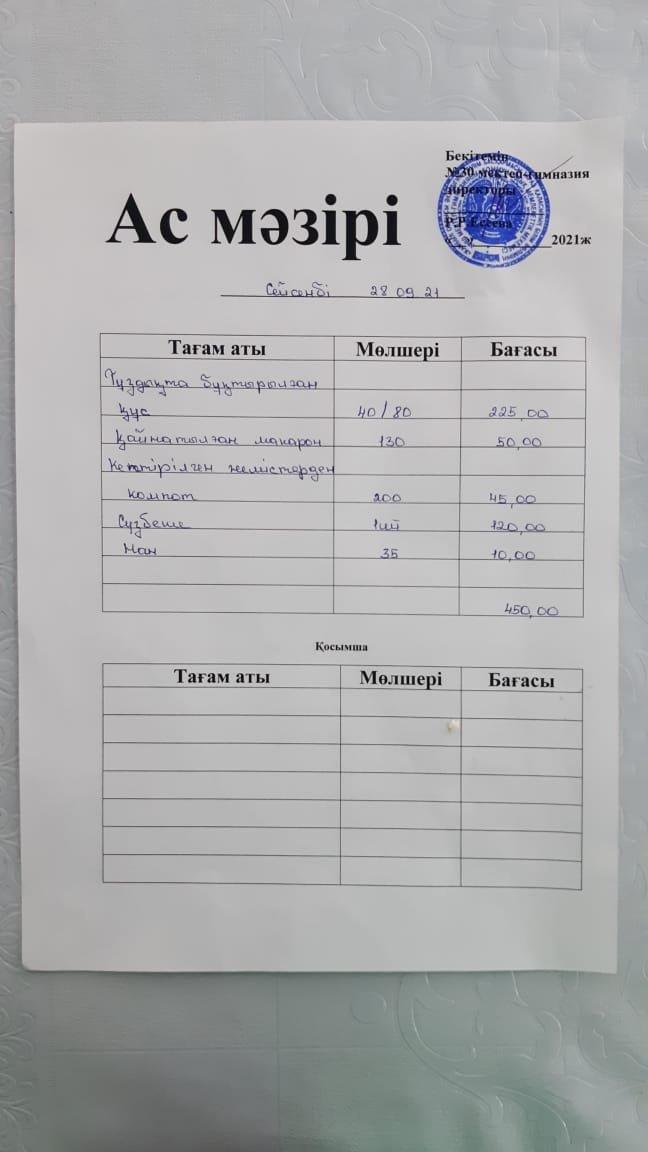 Бекітемін
№30 мектеп-гимназия
директоры
Р.Р Есеева
2021ж
Ас мәзірі
Сейсенбі 28 09 21
Тағам аты Мөлшері Бағасы
Тұздықта бұқтырылған
құс 40/80 225,00
Қайнатылған макарон 130 50,00
Кептірілген жемістерден
компот 200 45,00
Сүзбеше 1шт 120,00
Нан 35 10,00
450,00
Қосымша
Тағам аты Мөлшері Бағасы